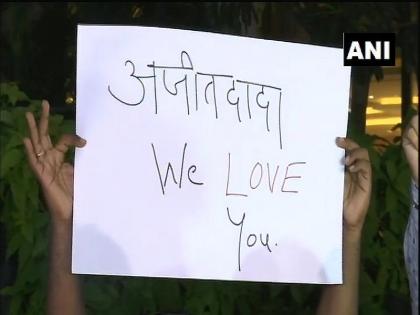 ANI
अजीतदादा
We LOVE
You.